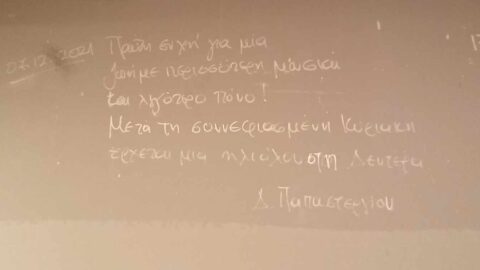 07.12.2021 Πρώτη ευχή για μια
ζωή με περισσότερη μουσική
και λιγότερο πόνο!
Μετα τη συννεφιασμένη Κυριακη
έρχεται μια ηλιόλουστη Δευτέρα
Δ. Παπαστεργίου